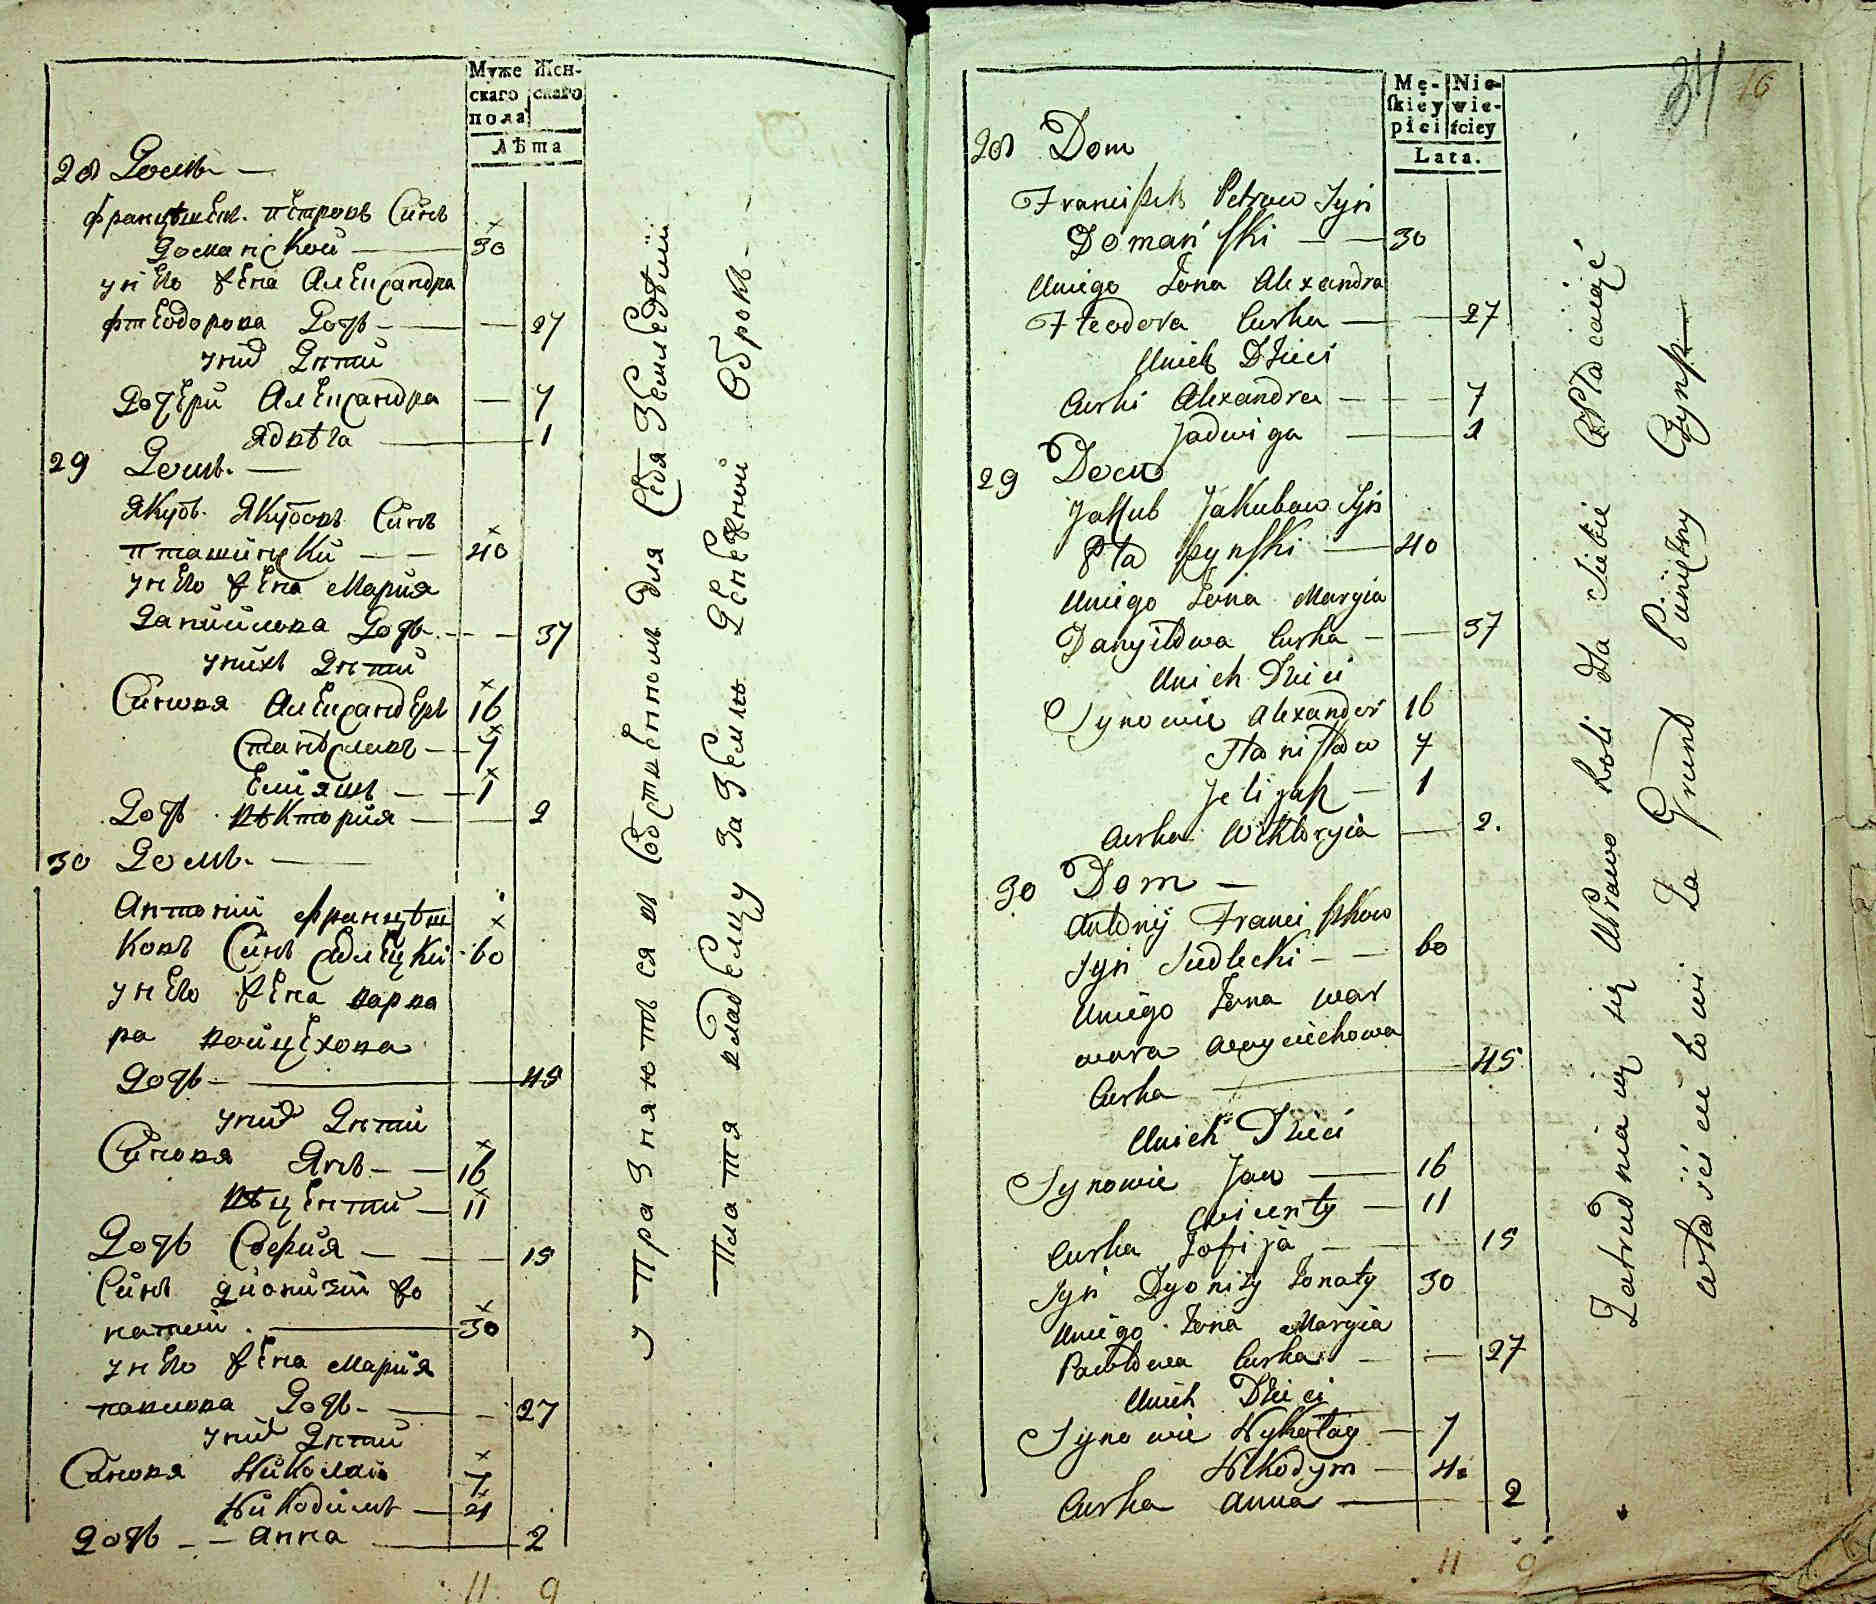 Муже Жен-
скаго скаго
пола
Лѣта
28 Домъ —
Францѣшекъ Петровъ Синъ
Доманской — 30
у него жена Александра
Фтеодорова Дочь — 27
у нихъ Дѣтей
Дочери Александра — 7
Ядвѣга — 1
29 Домъ —
Якубъ Якубовъ Синъ
Пташинский — 40
у него жена Мария
Данийлова Дочь — 37
у нихъ Дѣтей
Синовя Александеръ 16
Станѣславъ — 7
Елияшъ — 1
Дочь Вѣктория — 2
30 Домъ —
Антоний Францѣш
ковъ Синъ Садлецкий 60
у него жена Варва
ра Войцехова
Дочь — 45
у нихъ Дѣтей
Синовя Янъ — 16
Вѣцентий — 11
Дочь София — 15
Синъ Дионизий жо
натий — 30
у него жена Мария
Павлова Дочь — 27
у нихъ Дѣтей
Синовя Николай 7
Никодимъ — 4
Дочь — Анна — 2
11 9
упразняются въ собственномъ для себя земледѣлии
платя владелцу за землю денежной оброкъ —
34 16
Mę- Nie-
skiey wie-
płci sciey
Lata.
28 Dom
Franciszek Petrow Syn
Domański — 30
Uniego Żona Alexandra
Fteodora Curka — 27
Unich Dzieci
Curki Alexandra — 7
Jadwiga — 1
29 Dom
Jakub Jakubow Syn
Ptaszynski — 40
Uniego Żona Maryia
Danyiłowa Curka — 37
Unich Dzieci
Synowie Alexander 16
Stanisław 7
Jeliasz — 1
Curka Wiktoryia — 2.
30 Dom —
Antoniy Franciszkow
Syn Siedlecki — 60
Uniego Żona War
wara Woyciechowa
Curka — 45
Unich Dzieci
Synowie Jan — 16
Wicenty — 11
Curka Zofija — 15
Syn Dyonizy Żonaty 30
Uniego Żona Maryia
Pawłowa Curka — 27
Unich Dzieci
Synowie Nykołay — 7
Nikodym — 4.
Curka Anna — 2
11 9
Zatrudniaią się uprawą roli dla siebie opłacaiąć
właścicielowi za Grunt Pinięzny Czynsz